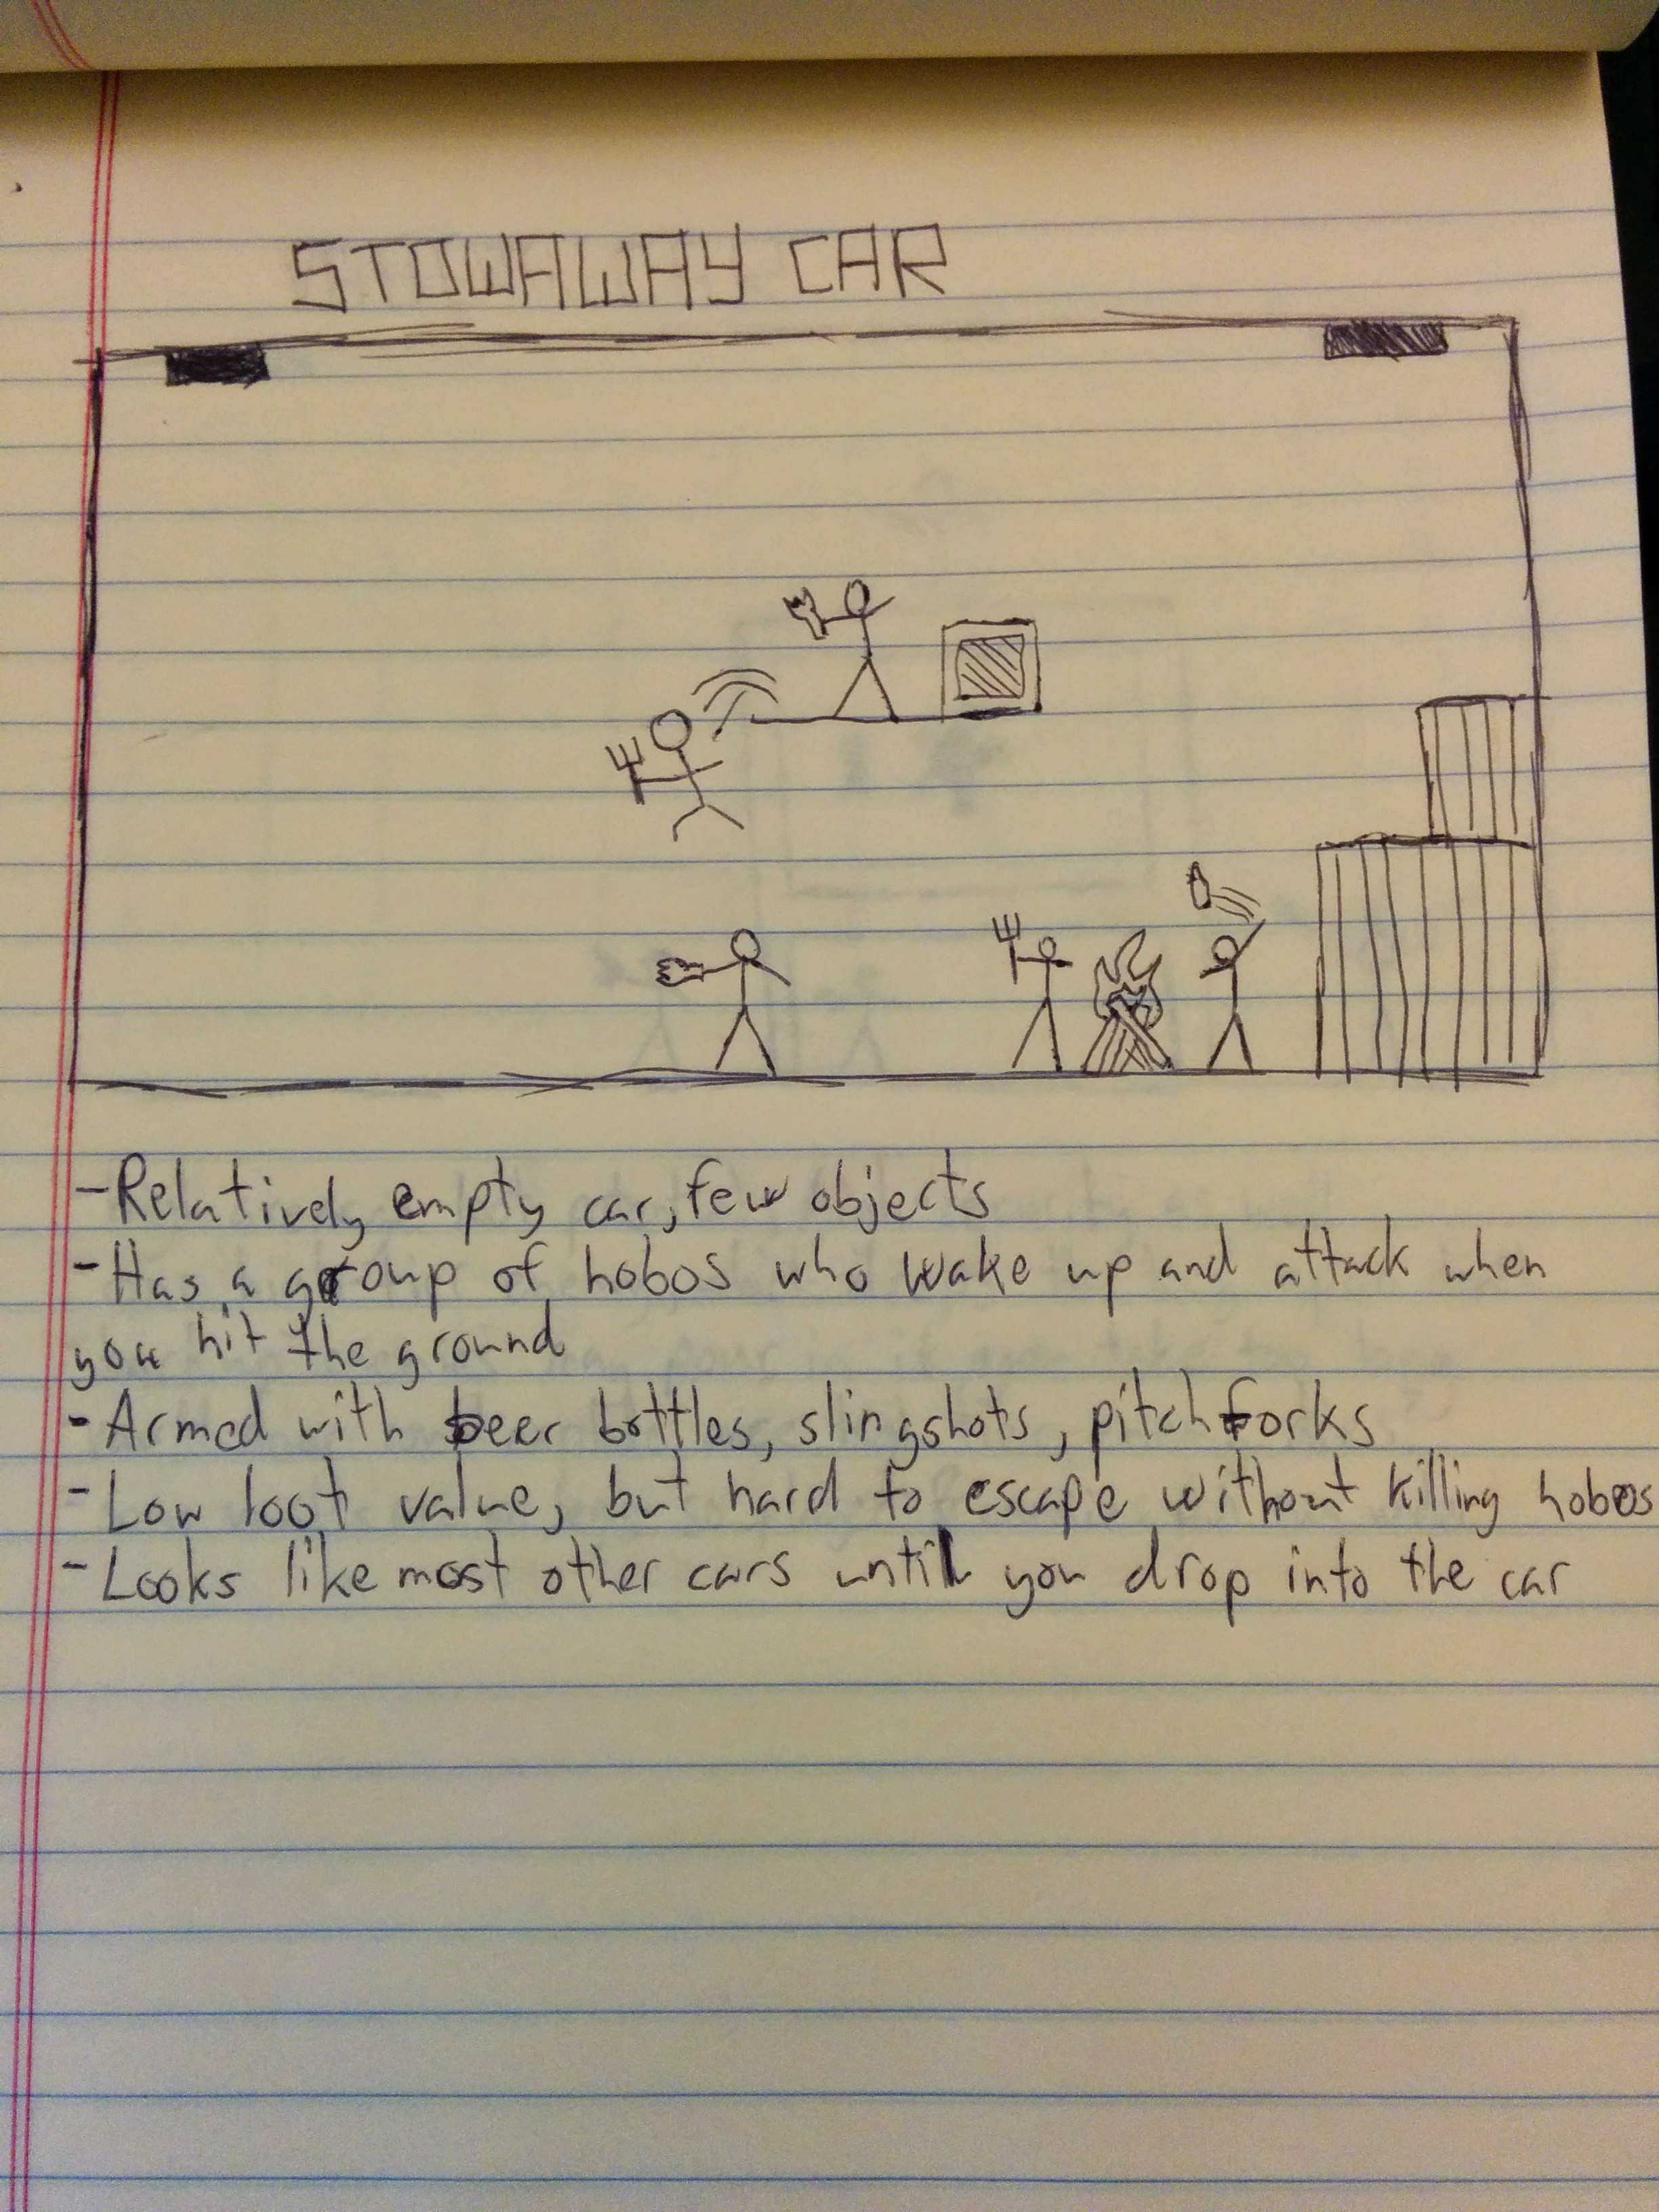 STOWAWAY CAR
-Relatively empty car, few objects
-Has a group of hobos who wake up and attack when
you hit the ground
-Armed with beer bottles, slingshots, pitchforks
-Low loot value, but hard to escape without killing hobos
-Looks like most other cars until you drop into the car